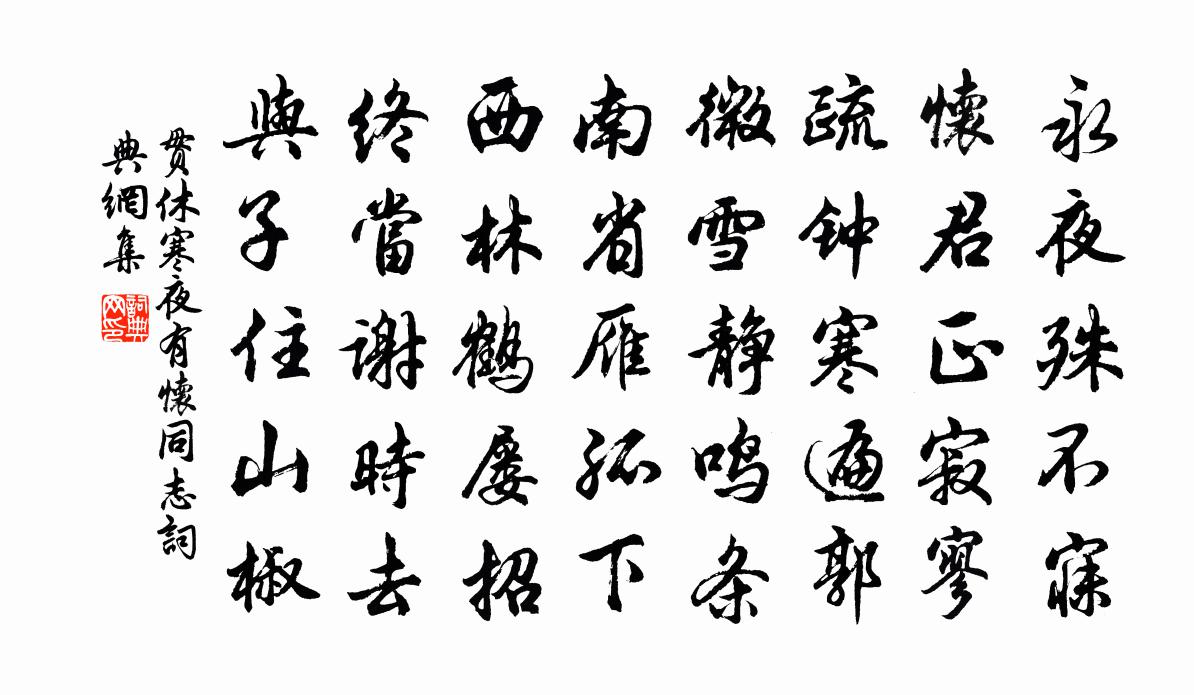 永夜殊不寐
懷君正寂寥
疏钟寒遍郭
微雪静鸣条
南省雁孤下
西林鹤屡招
终當谢時去
與子住山椒
贯休寒夜有懷同志詞
典網集
詞典网印